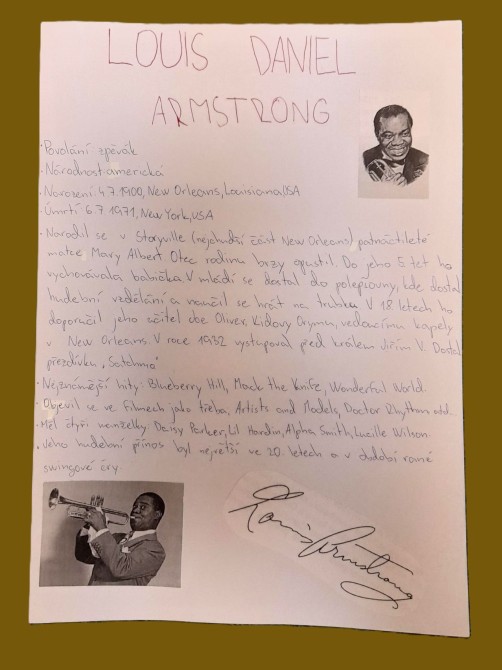 LOUIS DANIEL
ARMSTRONG
·Povolání zpěvák
·Národnost americká
·Narození 4.7.1900, New Orleans, Louisiana, USA
·Úmrtí 6.7.1971, New York, USA
·Narodil se v Storyville (nejchudší část New Orleans) patnáctileté
matce Mary Albert Otec rodinu brzy opustil. Do jeho 5 let ho
vychovávala babička. V mládí se dostal do polepšovny, kde dostal
hudební vzdělání a naučil se hrát na trubku V 18 letech ho
doporučil jeho učitel Joe Oliver, Kidovy Orymu, vedoucímu kapely
v New Orleans. V roce 1932 vystupoval před králem Jiřím V. Dostal
přezdívku „Satchmo"
·Nejznámější hity: Blueberry Hill, Mack the Knife, Wonderful World
·Objevil se ve filmech jako třeba, Artists and Models, Doctor Rhythm atd.
·Měl čtyři manželky: Deisy Parker, Lil Hardin, Alpha Smith, Lucille Wilson
·Jeho hudební přínos byl největší ve 20. letech a v období rané
swingové éry.
Louis Armstrong